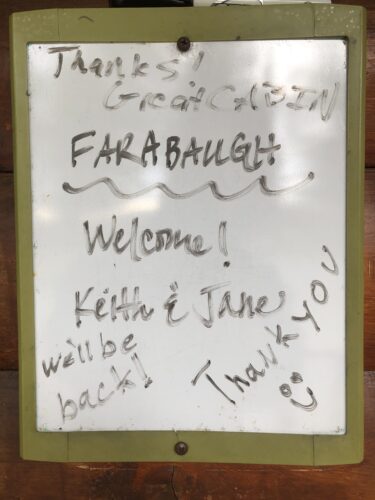 Thanks!
Great CABIN
FARABAUGH
Welcome!
Keith & Jane
We'll be
back!
Thank YOU